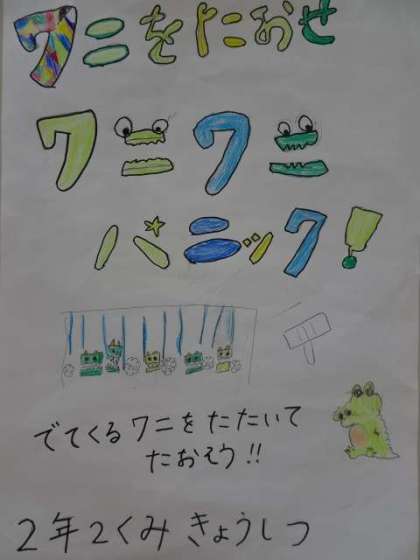 ワニをたおせ
ワニワニ
パニック!
でてくるワニをたたいて
たおそう!!
2年2くみ きょうしつ